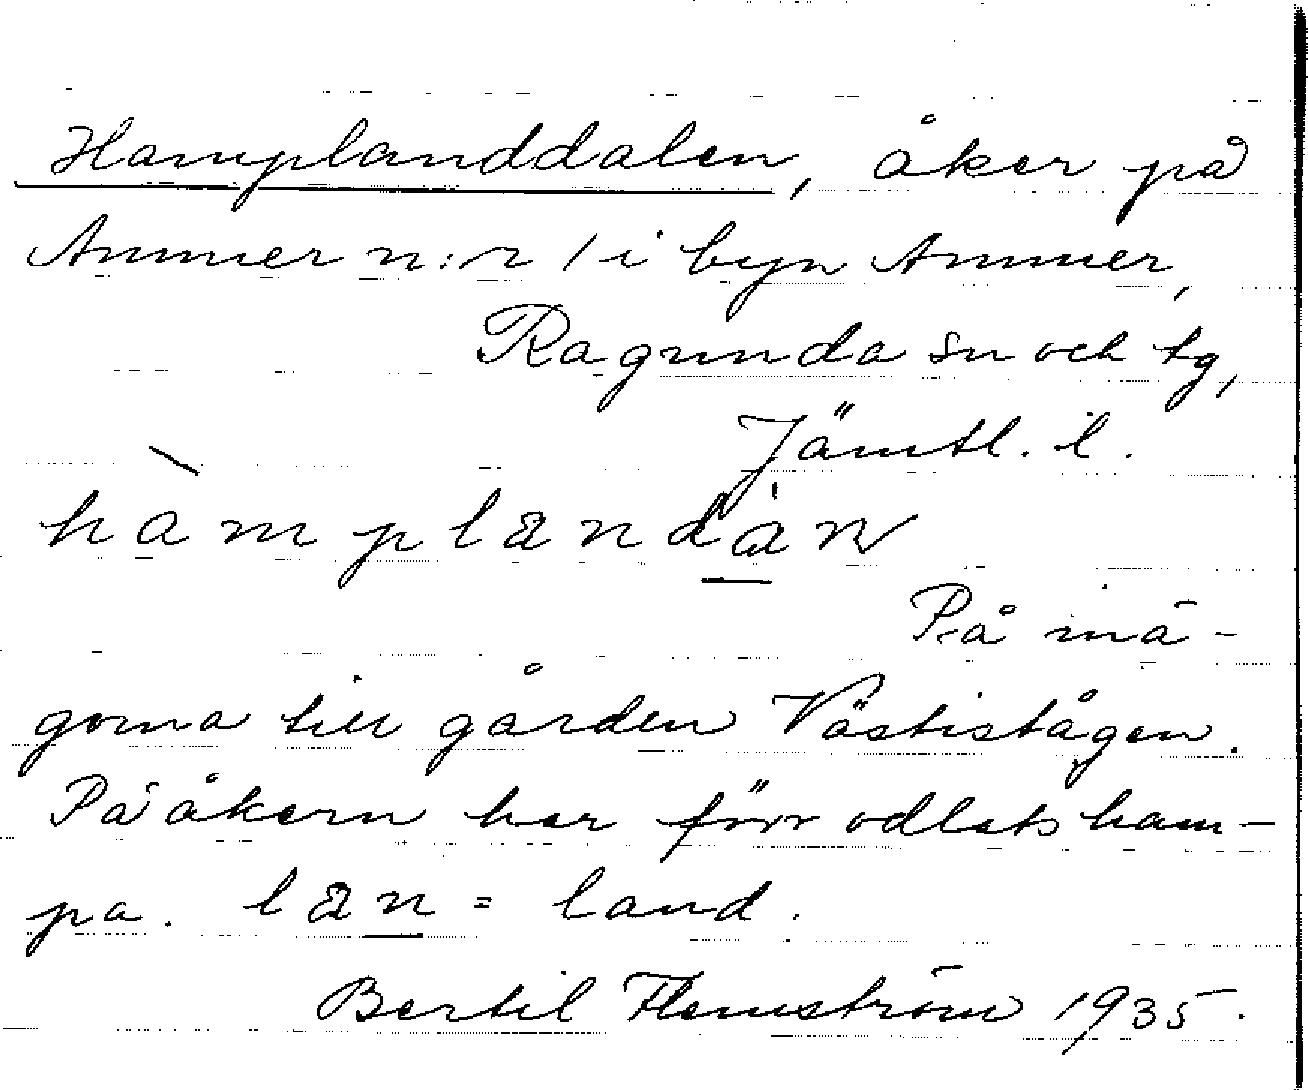 Hamplanddalen, åker på
Ammer n:r 1 i byn Ammer,
Ragunda sn och tg,
Jämtl. l.
hàmplandàn
På inä-
gorna till gården Västistågen.
På åkern har förr odlats ham-
pa. lan = land.
Bertil Flemström 1935.